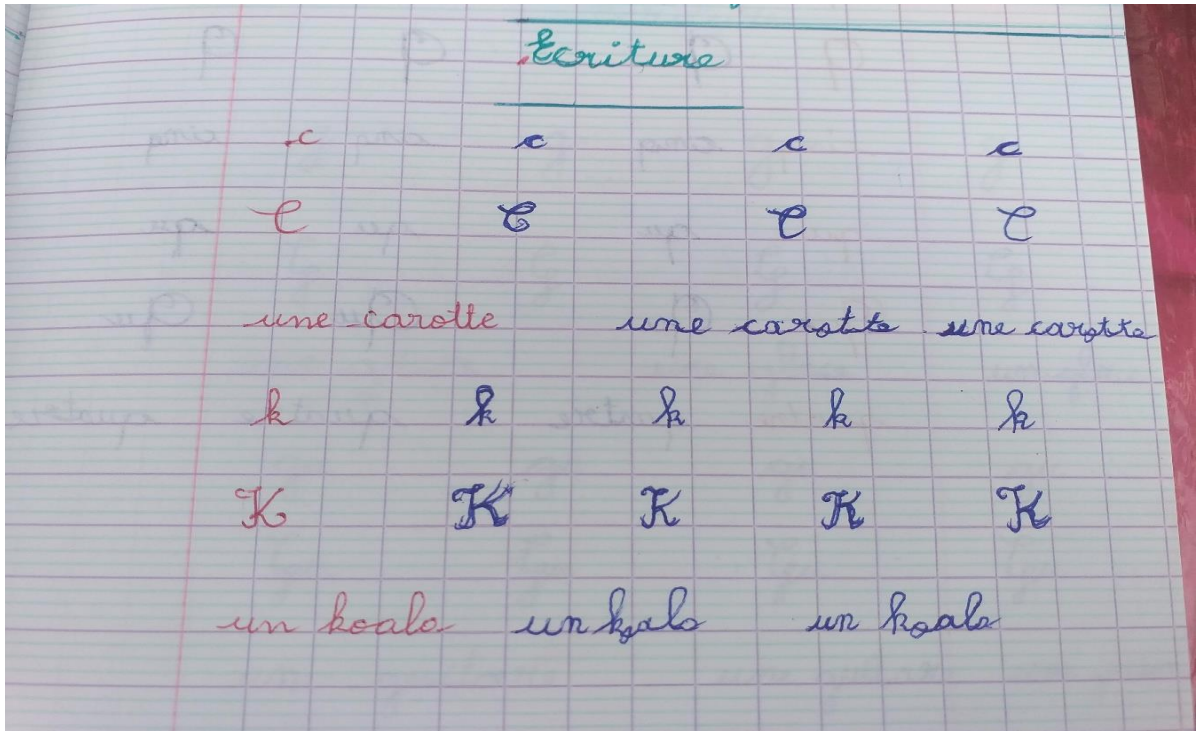 Ecriture
c c c c
C C C C
une carotte une carotte une carotte
k k k k k
K K K K K
un koala un koala un koala